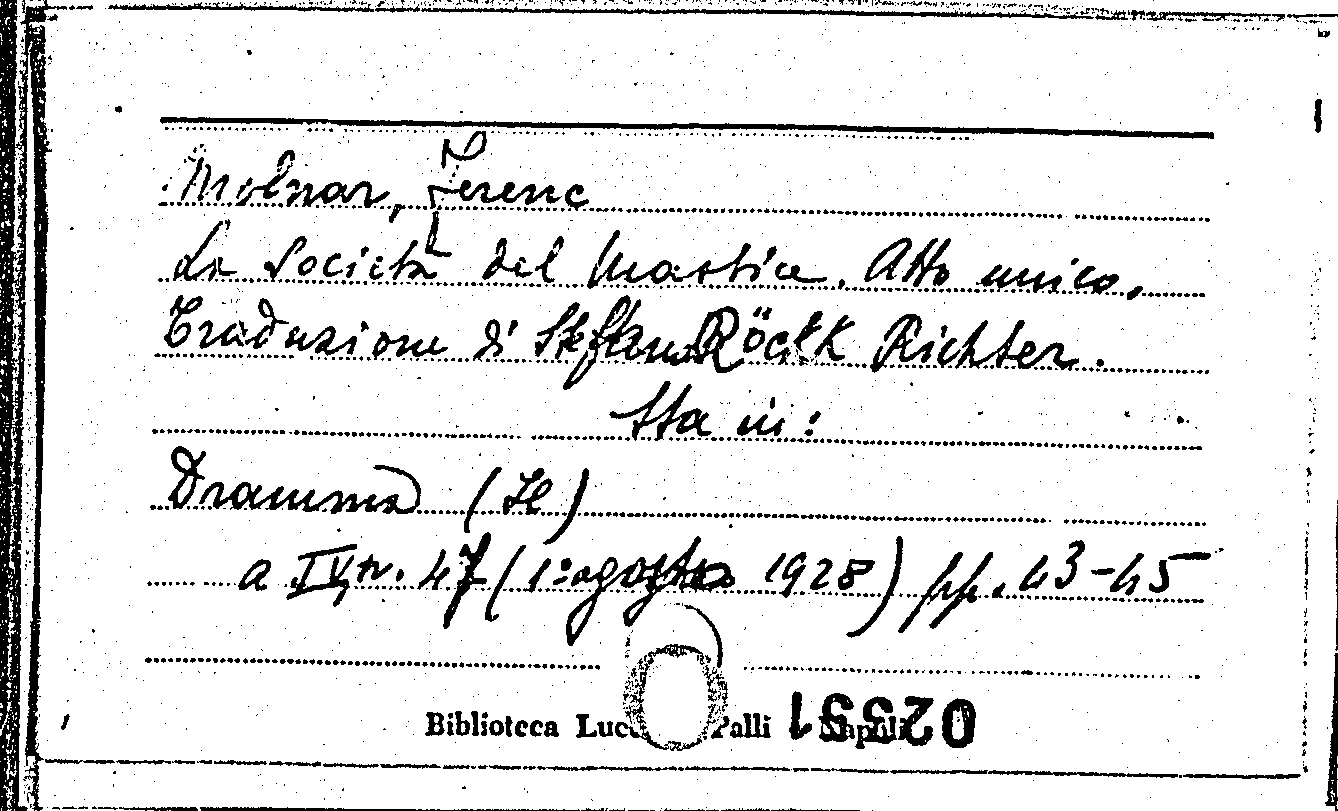 Molnar, Ferenc
La Società del Mastice. Atto unico.
Traduzione di Stefano Röckk Richter.
Sta in:
Dramma (Il)
a IV, n. 47 (1° agosto 1928) pp. 43-45
Biblioteca Lucc Palli Napoli